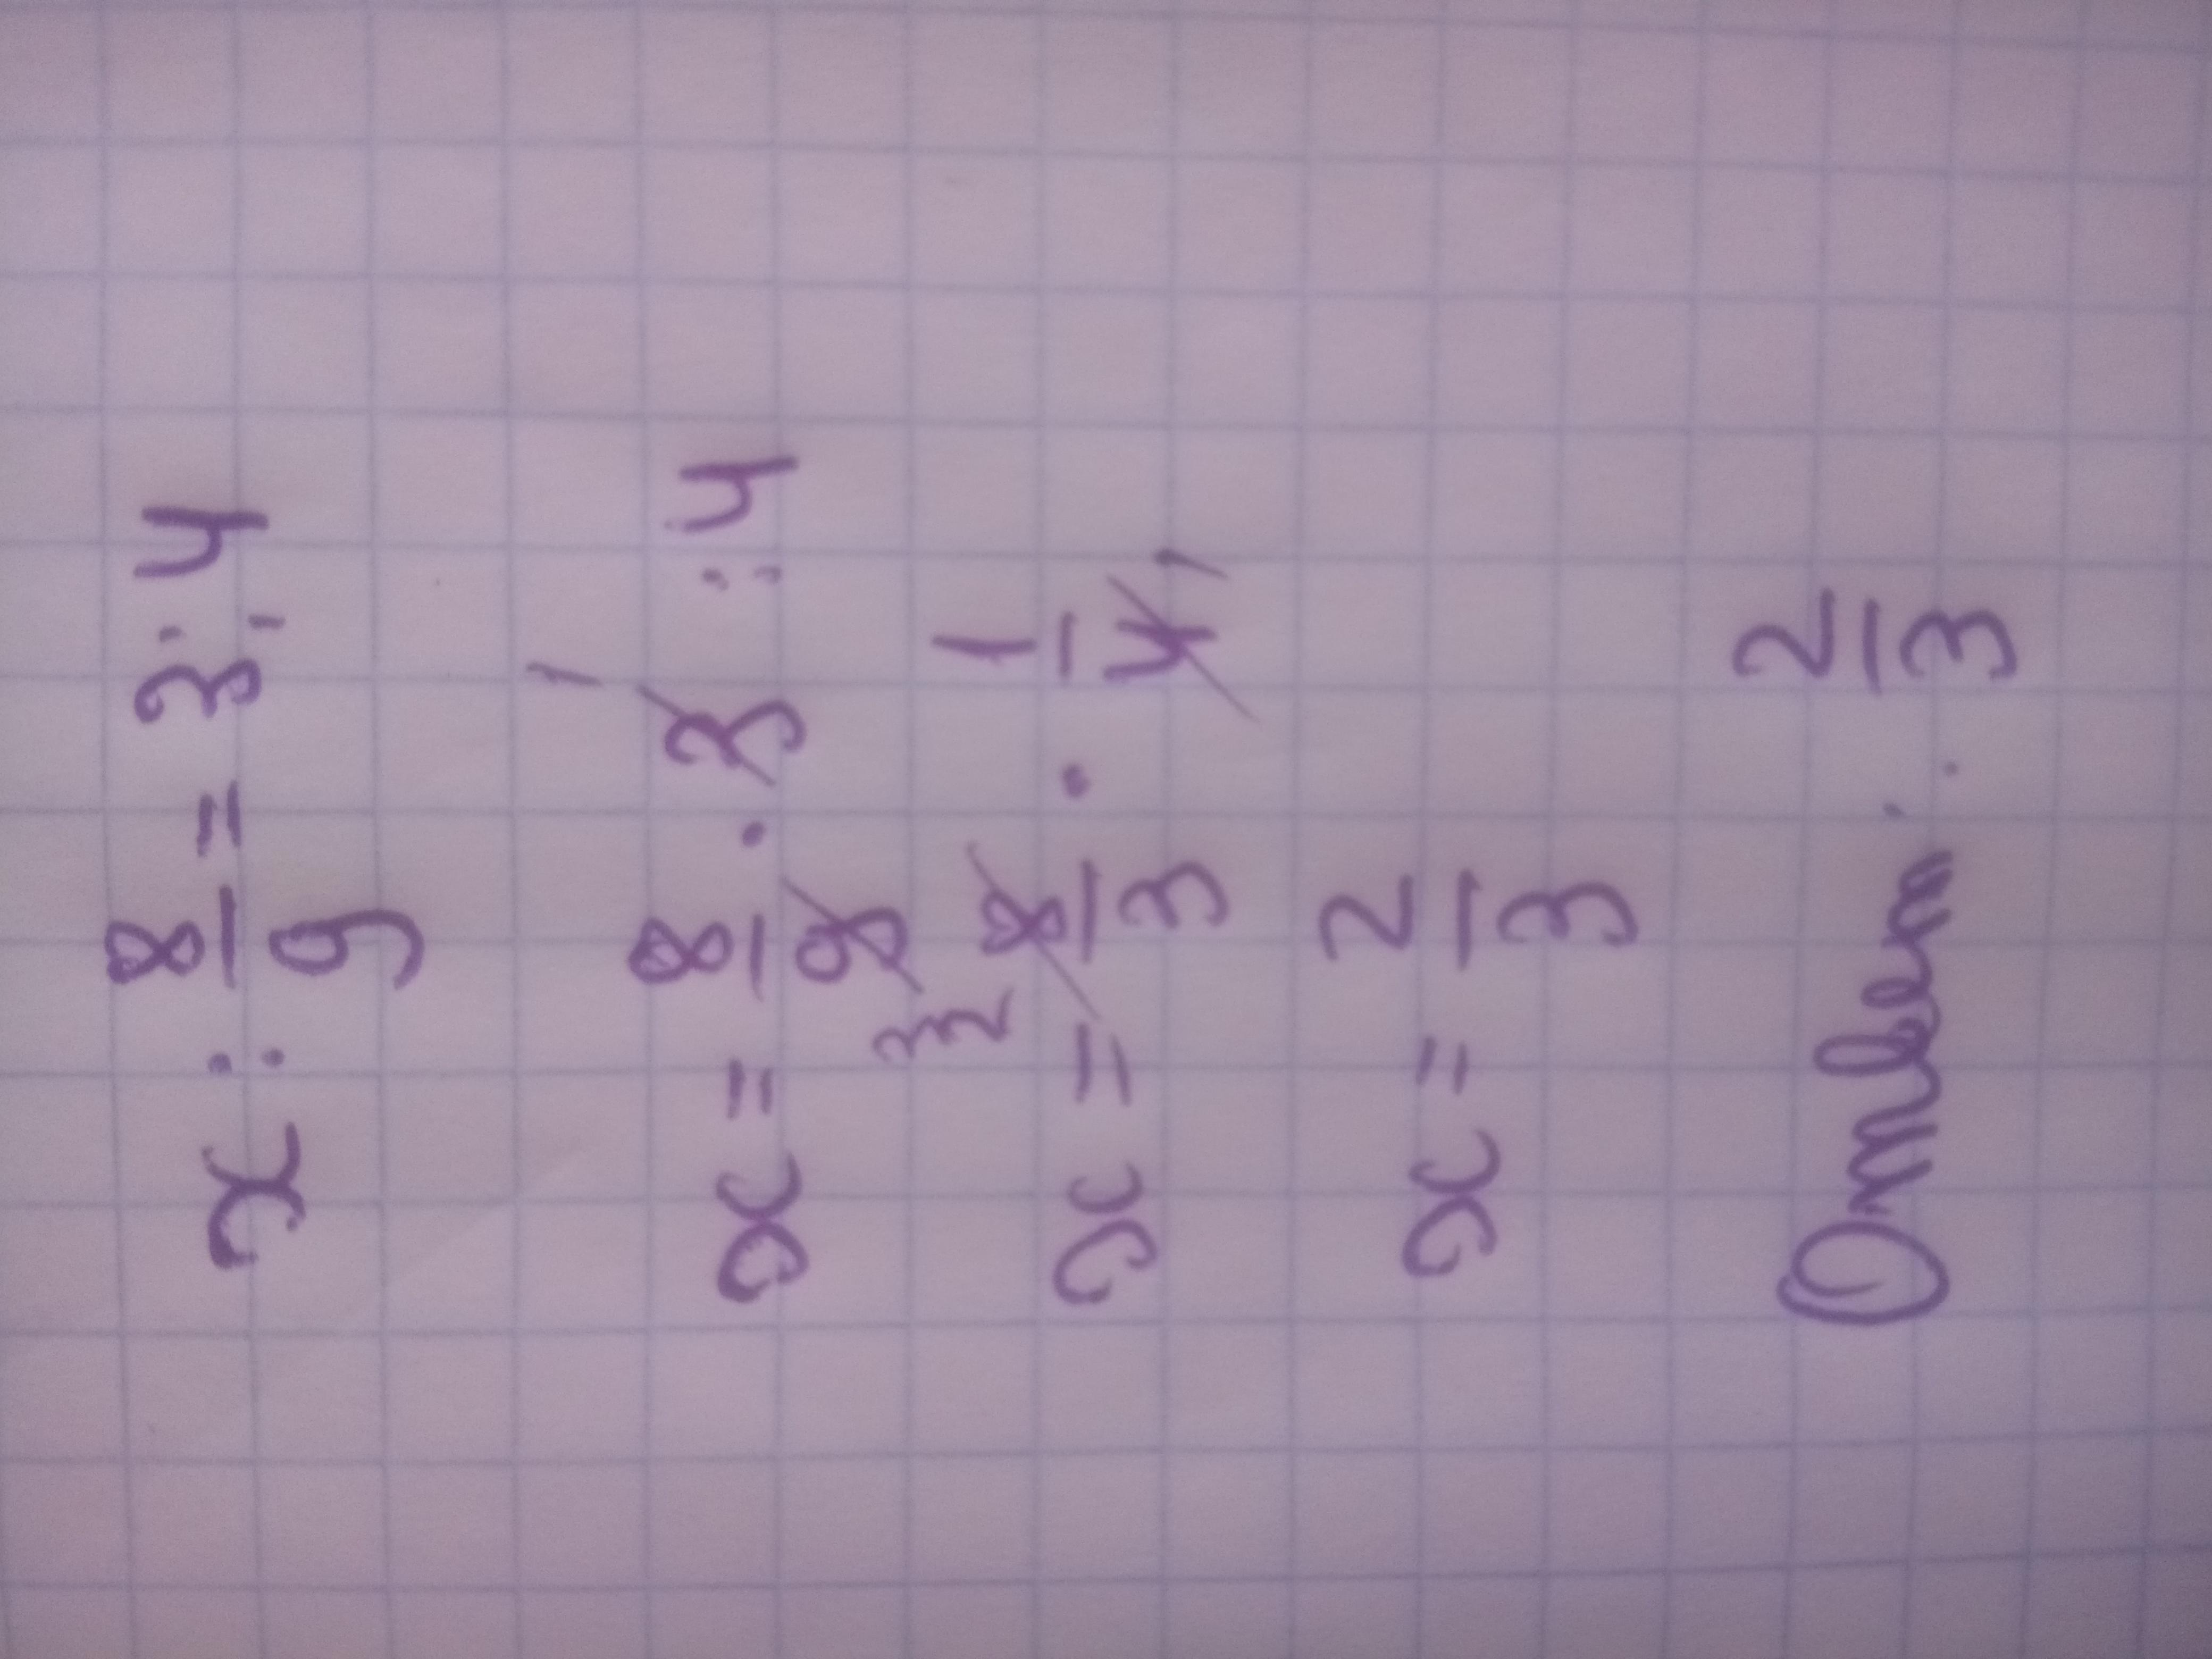 x : 8/9 = 3 : 4
x = 8/9 · 3 : 4
x = 8/3 · 1/4
x = 2/3
Ответ: 2/3